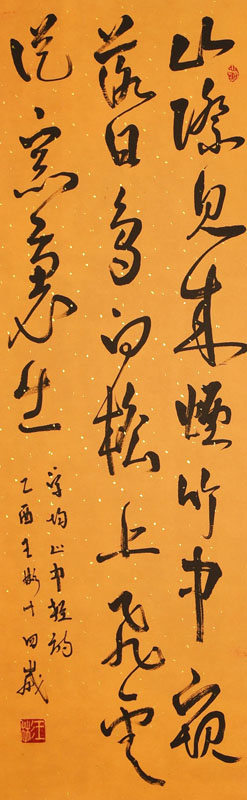 山際見來煙竹中窺
落日鳥向檐上飛雲
從窗裏出
吳均山中雜詩
乙酉王彬十四歲